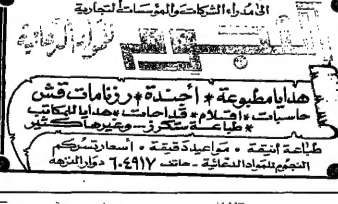 الى مدراء الشركات والمؤسسات التجارية
للمواد الدعائية
هدايا مطبوعة * أجندة * رزنامات قش
حاسبات * اقلام * قداحات * هدايا للمكاتب
* طباعة ستكرز - وغيرها كثير
طباعة أنيقة * مواعيد دقيقة * أسعار تسركم
النجوم للمواد الدعائية - هاتف ٦٠٤٩١٧ دوار النزهه